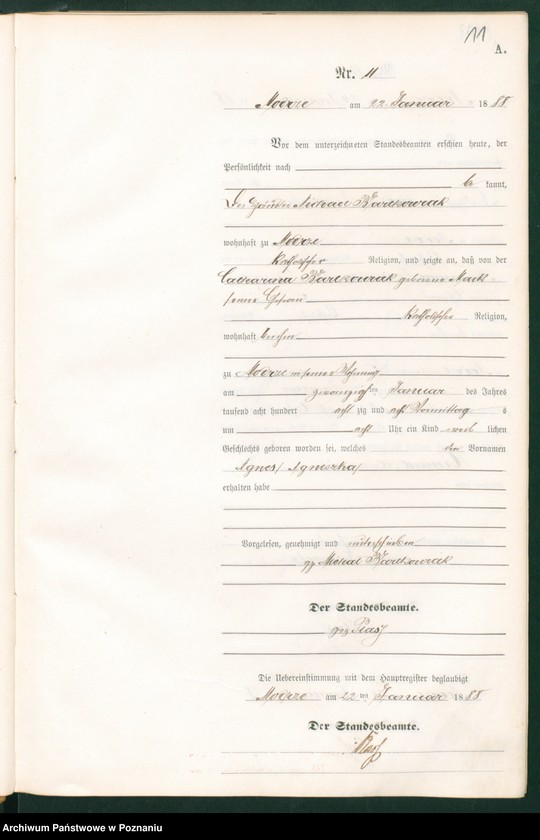 11
A.
Nr. 11
am 22 Januar 1888
Vor dem unterzeichneten Standesbeamten erschien heute, der
Persönlichkeit nach
be kannt,
Michael Bartkowiak
wohnhaft zu
katholischer Religion, und zeigte an, daß von der
Catharina Bartkowiak geborene
seiner Ehefrau
katholischer Religion,
wohnhaft bei ihm
zu in seiner Wohnung
am zwanzigsten Januar des Jahres
tausend acht hundert acht zig und acht Vormittag s
um acht Uhr ein Kind weib lichen
Geschlechts geboren worden sei, welches den Vornamen
Agnes /Agnieszka/
erhalten habe
Vorgelesen, genehmigt und unterschrieben
gez Michael Bartkowiak
Der Standesbeamte.
gez
Die Uebereinstimmung mit dem Hauptregister beglaubigt
am 22 ten Januar 1888
Der Standesbeamte.
Archiwum Państwowe w Poznaniu